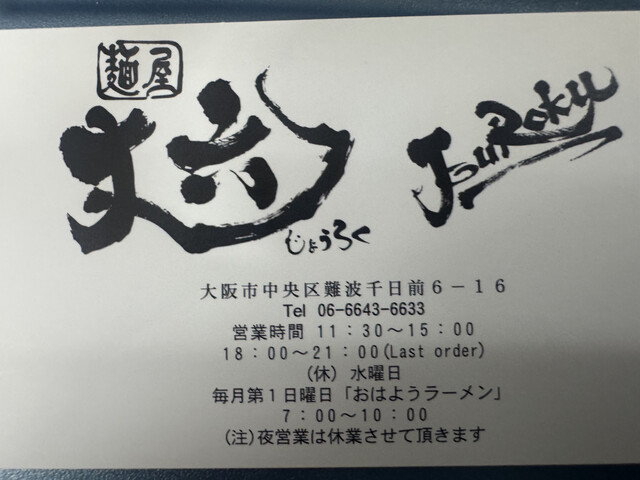 麺屋
丈六
じょうろく
JouRoku
大阪市中央区難波千日前6－16
Tel 06-6643-6633
営業時間 11：30～15：00
18：00～21：00(Last order)
(休) 水曜日
毎月第1日曜日「おはようラーメン」
7：00～10：00
(注)夜営業は休業させて頂きます